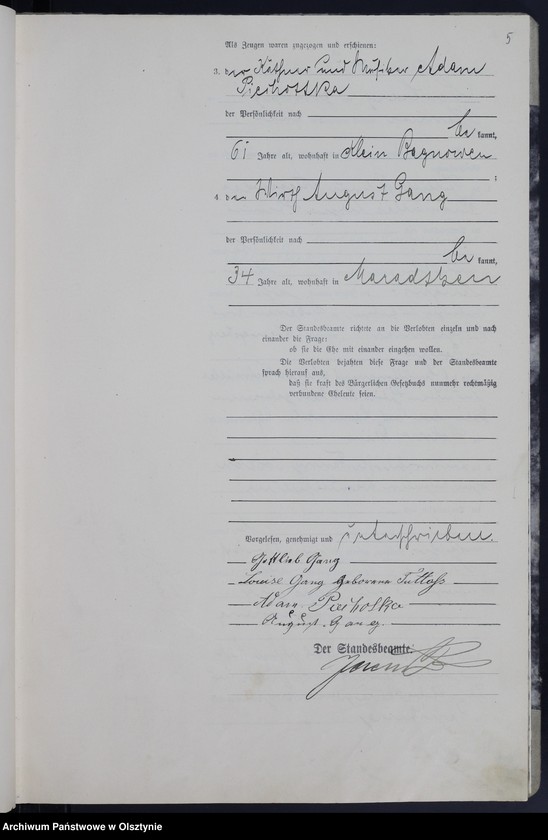 5
Als Zeugen waren zugezogen und erschienen:
3. der Käthner und Musiker Adam
Piechottka
der Persönlichkeit nach
be kannt,
61 Jahre alt, wohnhaft in Klein Bagnowen
;
4. der Wirth August Gang
der Persönlichkeit nach
be kannt,
34 Jahre alt, wohnhaft in Maradtken
Der Standesbeamte richtete an die Verlobten einzeln und nach
einander die Frage:
ob sie die Ehe mit einander eingehen wollen.
Die Verlobten bejahten diese Frage und der Standesbeamte
sprach hierauf aus,
daß sie kraft des Bürgerlichen Gesetzbuchs nunmehr rechtmäßig
verbundene Eheleute seien.
Vorgelesen, genehmigt und unterschrieben.
Gottlieb Gang
Louise Gang geborene
Adam Piechotka
August Gang.
Der Standesbeamte.
Archiwum Państwowe w Olsztynie